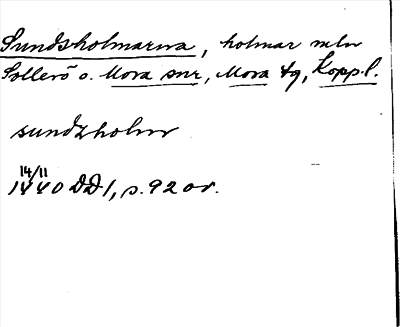 Sundsholmarna, holmar mln
Sollerö o. Mora snr, Mora tg, Kopp.l.
sundzholm
14/11
1440 DD 1, s. 92 or.